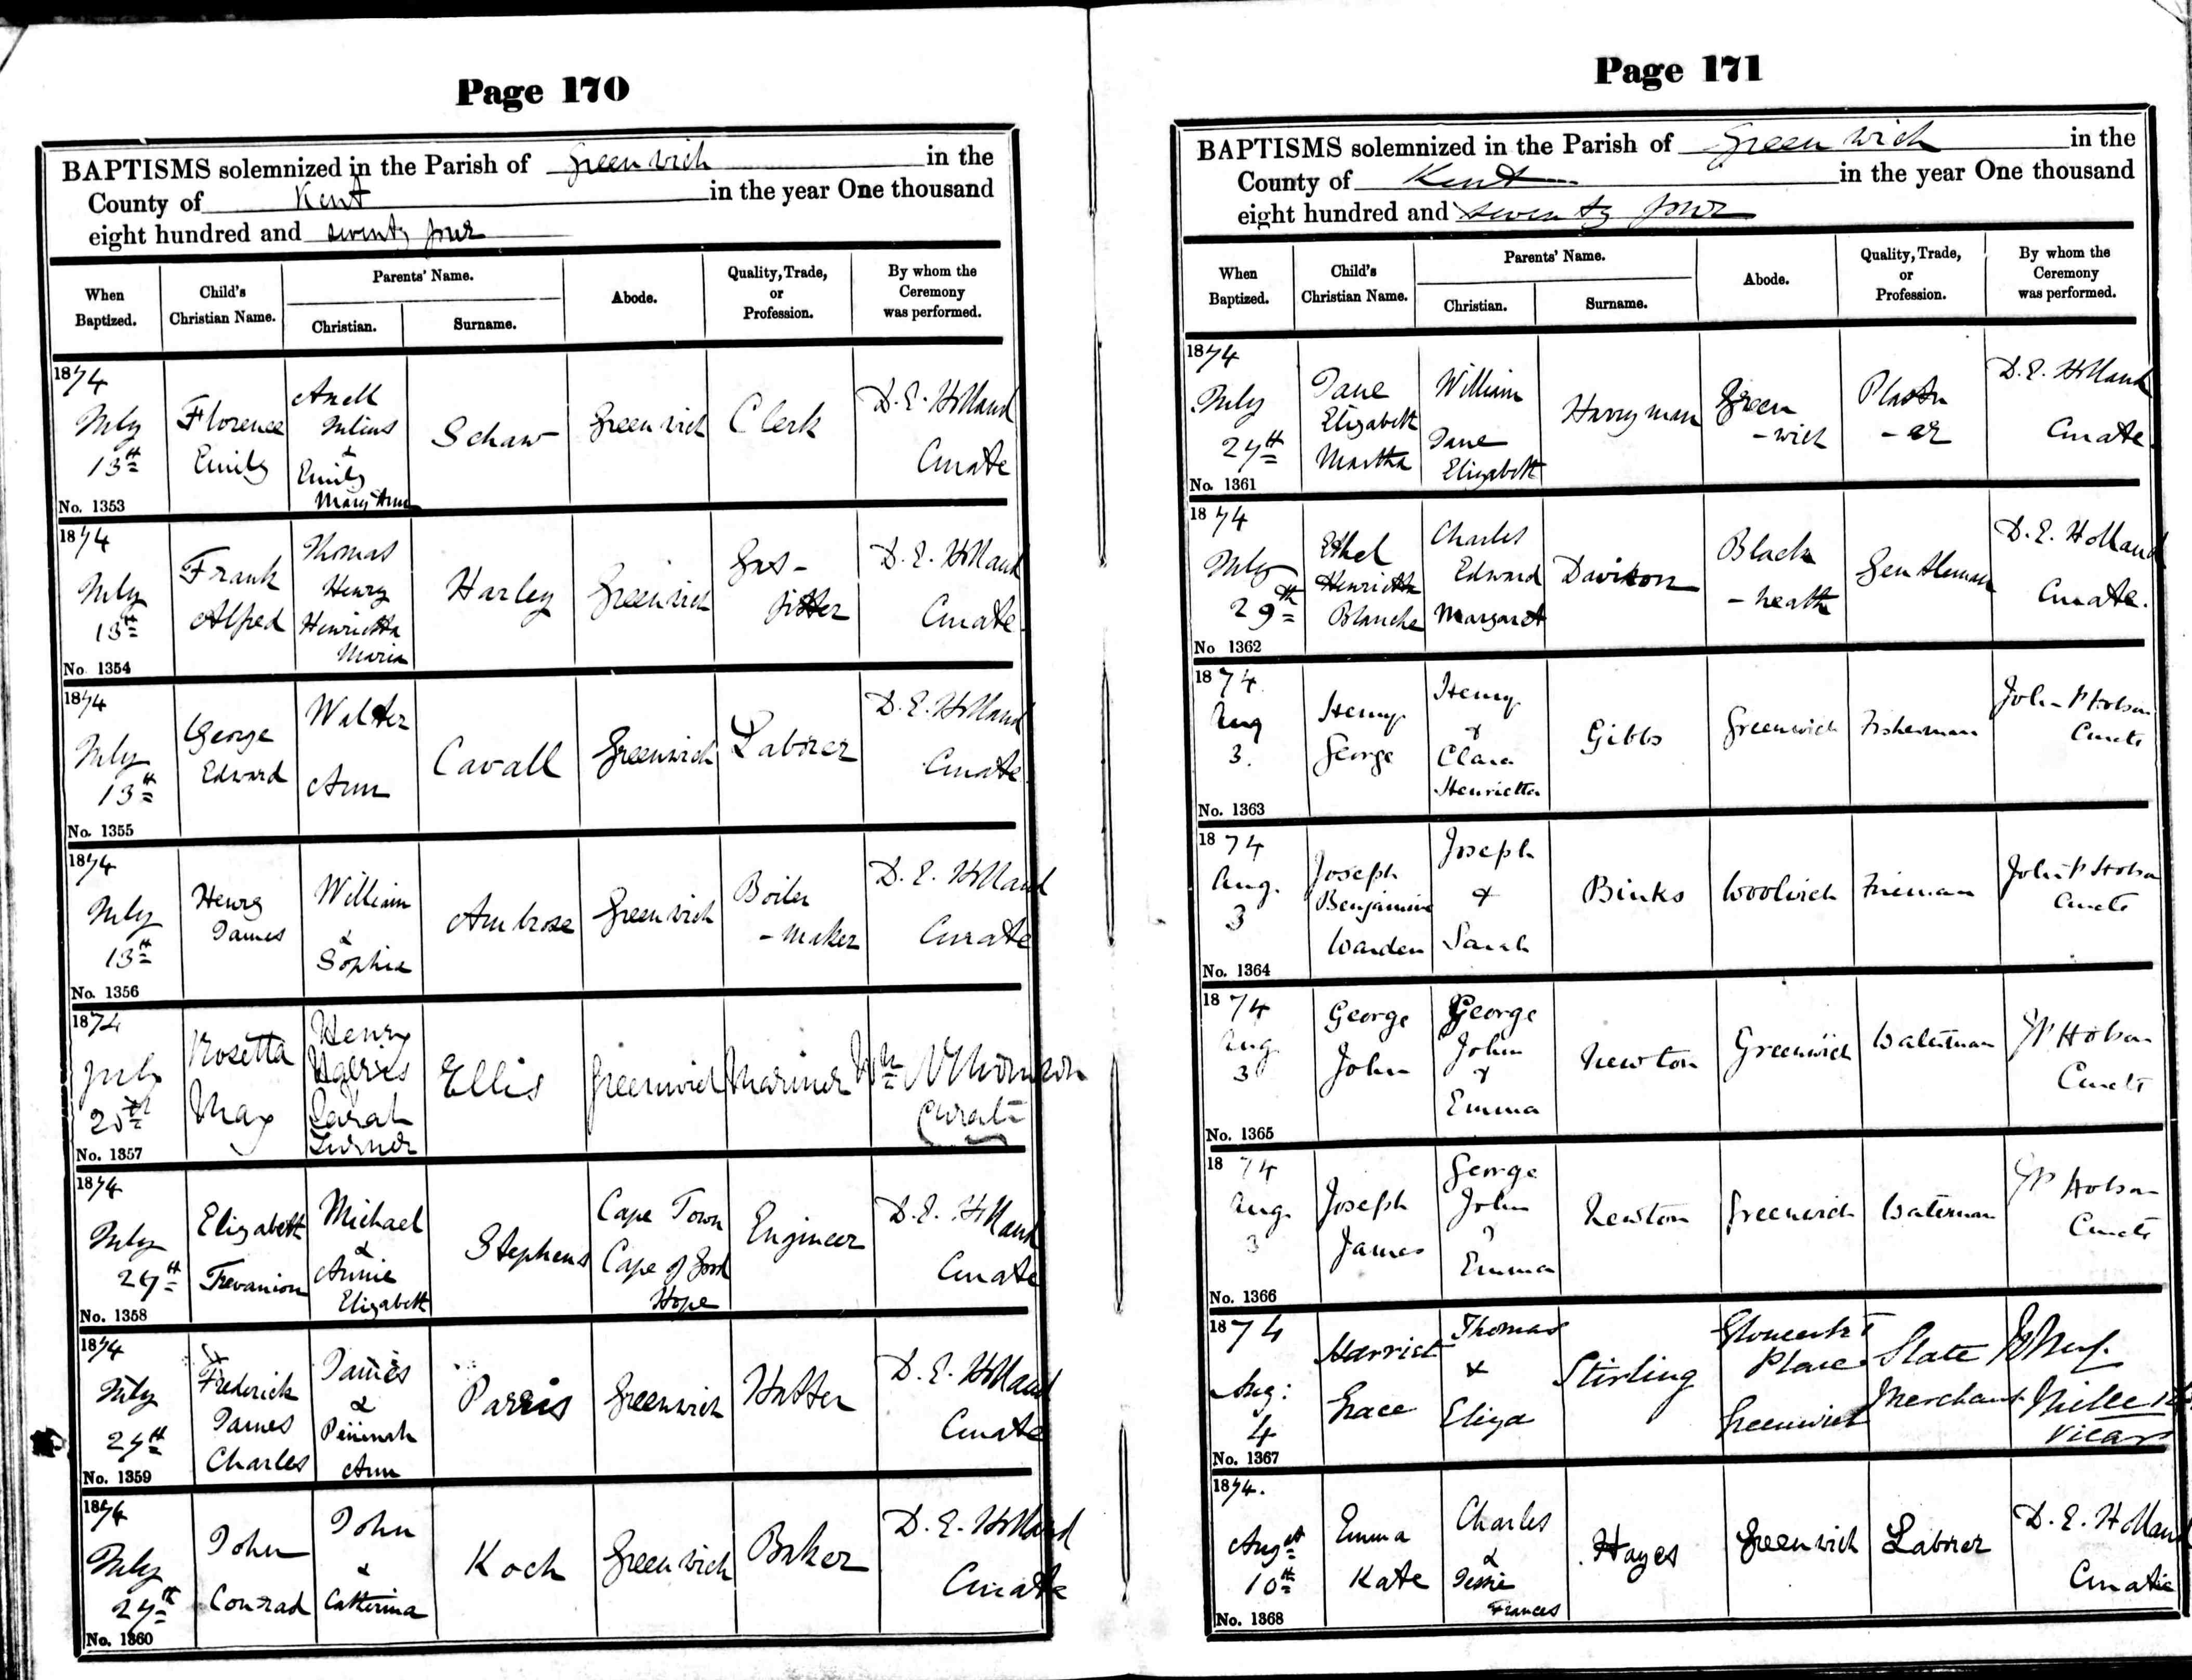 Page 170
BAPTISMS solemnized in the Parish of Greenwich in the
County of Kent in the year One thousand
eight hundred and seventy four
When Baptized.
Child's Christian Name.
Parents' Name.
Christian.
Surname.
Abode.
Quality, Trade, or Profession.
By whom the Ceremony was performed.
1874 July 13th No. 1353
Florence Emily
Julius & Emily Mary Ann
Schaw
Greenwich
Clerk
D. E. Holland Curate
1874 July 13th No. 1354
Frank Alfred
Thomas Henry Henrietta Maria
Harley
Greenwich
Gas-fitter
D. E. Holland Curate
1874 July 13th No. 1355
George Edward
Walter Ann
Cavall
Greenwich
Laborer
D. E. Holland Curate
1874 July 13th No. 1356
Henry James
William & Sophia
Ambrose
Greenwich
Boiler-maker
D. E. Holland Curate
1874 July No. 1357
Rosetta May
Henry Sarah Turner
Ellis
Greenwich
Mariner
Wm Curate
1874 July 27th No. 1358
Elizabeth Trevanion
Michael & Annie Elizabeth
Stephens
Cape Town Cape of Good Hope
Engineer
D. E. Holland Curate
1874 July 27th No. 1359
Frederick James Charles
James & Peninah Ann
Parris
Greenwich
Hatter
D. E. Holland Curate
1874 July 27th No. 1360
John Conrad
John & Catterina
Koch
Greenwich
Baker
D. E. Holland Curate
Page 171
BAPTISMS solemnized in the Parish of Greenwich in the
County of Kent in the year One thousand
eight hundred and seventy four
When Baptized.
Child's Christian Name.
Parents' Name.
Christian.
Surname.
Abode.
Quality, Trade, or Profession.
By whom the Ceremony was performed.
1874 July 27th No. 1361
Jane Elizabeth Martha
William Jane Elizabeth
Harryman
Green-wich
Plaster-er
D. E. Holland Curate.
1874 July 29th No 1362
Ethel Henrietta Blanche
Charles Edward Margaret
Davison
Black-heath
Gentleman
D. E. Holland Curate.
1874 Aug 3. No. 1363
Henry George
Henry & Clara Henrietta
Gibbs
Greenwich
Fisherman
John P Hobson Curate
1874 Aug. 3 No. 1364
Joseph Benjamine Warden
Joseph & Sarah
Binks
Woolwich
Fireman
John P Hobson Curate
1874 Aug 3 No. 1365
George John
George John & Emma
Newton
Greenwich
Waterman
JP Hobson Curate
1874 Aug. 3 No. 1366
Joseph James
George John & Emma
Newton
Greenwich
Waterman
JP Hobson Curate
1874 Aug: 4 No. 1367
Harriet Grace
Thomas & Eliza
Stirling
Place Greenwich
Slate Merchant
Miller Vicar
1874. Augst 10th No. 1368
Emma Kate
Charles & Jessie Frances
Hayes
Greenwich
Laborer
D. E. Holland Curate